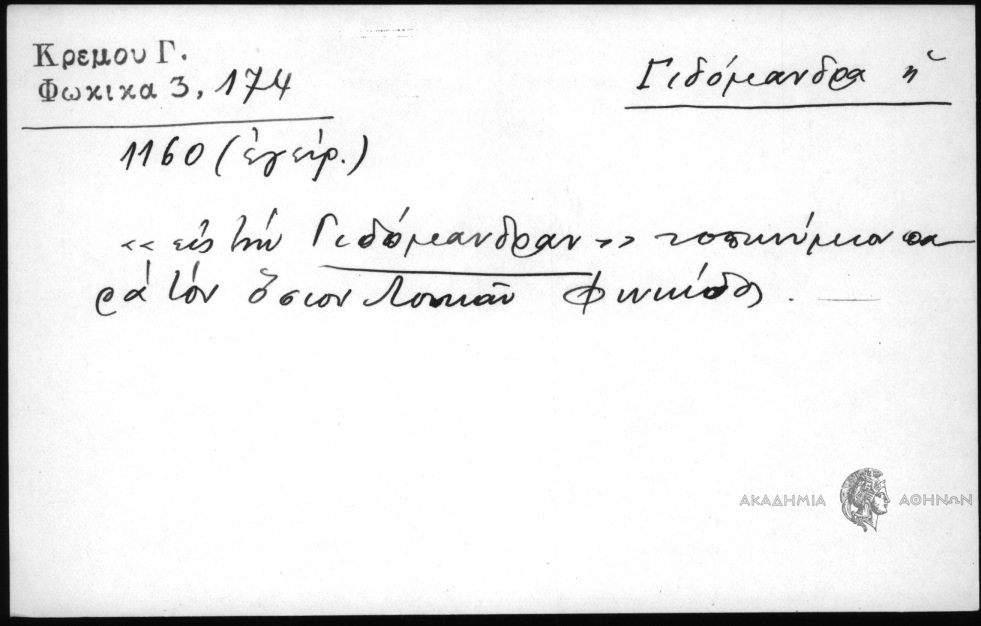 Κρεμου Γ.
Φωκικα 3, 174
Γιδόμανδρα ἡ
1160 (ἐγείρ.)
«εἰς τὴν Γιδόμανδραν» τοπωνύμιον πα-
ρὰ τὸν ὅσιον Λουκᾶν Φωκίδος.
ΑΚΑΔΗΜΙΑ ΑΘΗΝΩΝ